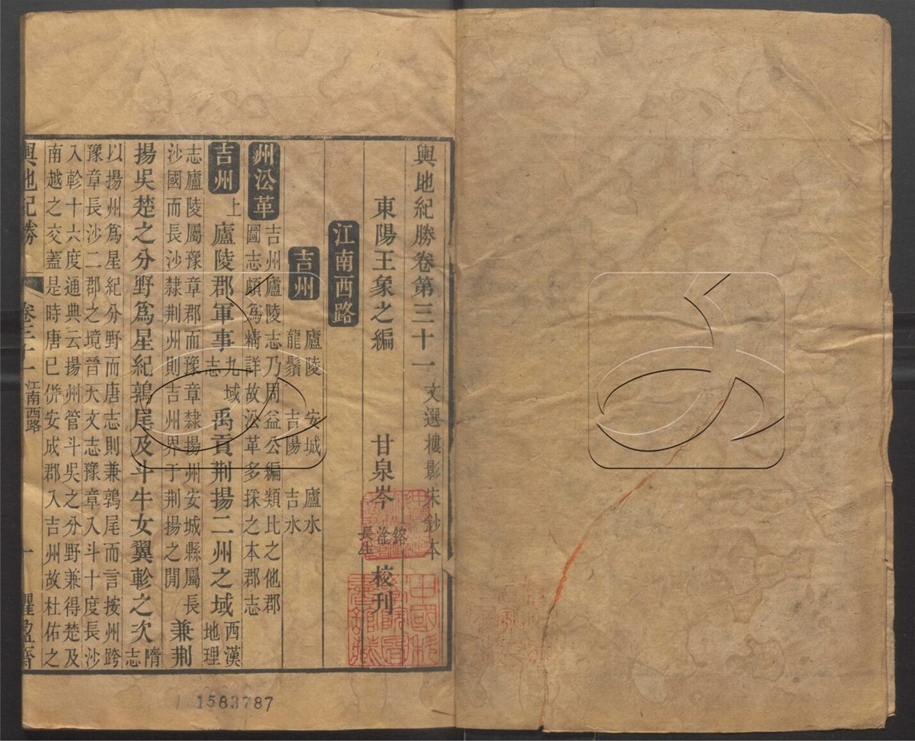 輿地紀勝卷第三十一 文選樓影宋鈔本
東陽王象之編 甘泉岑 鎔 淦 長生 校刊
江南西路
吉州 廬陵 安城 廬水
龍鬚 吉陽 吉水
州沿革 吉州廬陵志乃周益公編類比之他郡
圖志頗為精詳故沿革多採之本郡志
吉州 上 廬陵郡軍事 九域志 禹貢荊揚二州之域 西漢地理
志廬陵屬豫章郡而豫章隸揚州安城縣屬長
沙國而長沙隸荊州則吉州界于荊揚之閒 兼荊
揚吳楚之分野爲星紀鶉尾及斗牛女翼軫之次 隋志
以揚州爲星紀分野而唐志則兼鶉尾而言按州跨
豫章長沙二郡之境晉天文志豫章入斗十度長沙
入軫十六度通典云揚州管斗吳之分野兼得楚及
南越之交蓋是時唐已併安成郡入吉州故杜佑之
輿地紀勝 卷三十一 江南西路 一 懼盈齋
1583787